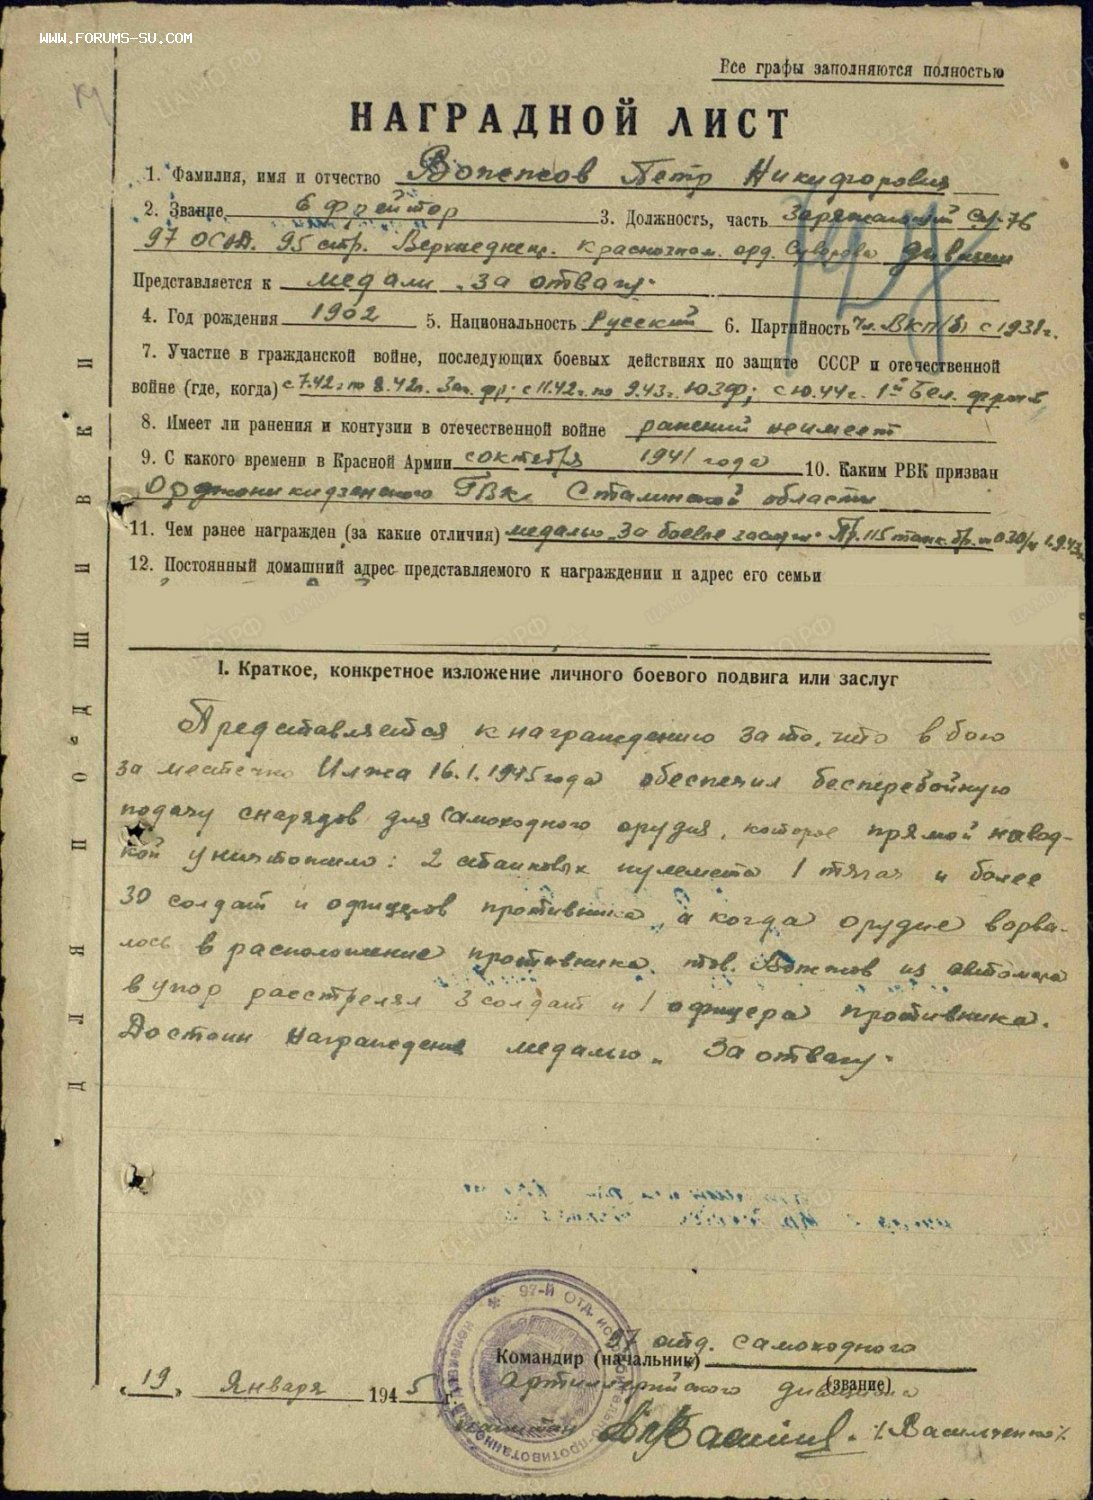 WWW.FORUMS-SU.COM
Все графы заполняются полностью
НАГРАДНОЙ ЛИСТ
1. Фамилия, имя и отчество Петр Никифорович
2. Звание Ефрейтор 3. Должность, часть Заряжающий СУ-76
97 ОСАД. 95 стр. Верхнеднепр. Краснознам. орд. Суворова дивизии
Представляется к медали "За отвагу"
4. Год рождения 1902 5. Национальность Русский 6. Партийность чл. ВКП(б) с 1931г.
7. Участие в гражданской войне, последующих боевых действиях по защите СССР и отечественной
войне (где, когда) с 7.42г. по 8.42г. Зап. фр; с 11.42г. по 9.43г. ЮЗФ; с 10.44г. 1й Бел. фронт
8. Имеет ли ранения и контузии в отечественной войне ранений не имеет
9. С какого времени в Красной Армии с октября 1941 года 10. Каким РВК призван
Орджоникидзенского ГВК Сталинской области
11. Чем ранее награжден (за какие отличия) медалью "За боевые заслуги" Пр. 115 танк. бр. 1.9.43
12. Постоянный домашний адрес представляемого к награждении и адрес его семьи
I. Краткое, конкретное изложение личного боевого подвига или заслуг
Представляется к награждению за то, что в бою
за местечко Илжа 16.1.1945 года обеспечил бесперебойную
подачу снарядов для самоходного орудия, которое прямой навод-
кой уничтожило: 2 станковых пулемета 1 тягач и более
30 солдат и офицеров противника, а когда орудие ворва-
лось в расположение противника. тов. из автомата
в упор расстрелял 3 солдат и 1 офицера противника.
Достоин награждения медалью "За отвагу"
97 отд. самоходного
Командир (начальник)
"19" Января 1945 г. Артиллерийского дивизиона (звание)
капитан /Васильченко/
97-й Отд. истребительно-противотанковый дивизион
ДЛЯ ПОДШИВКИ